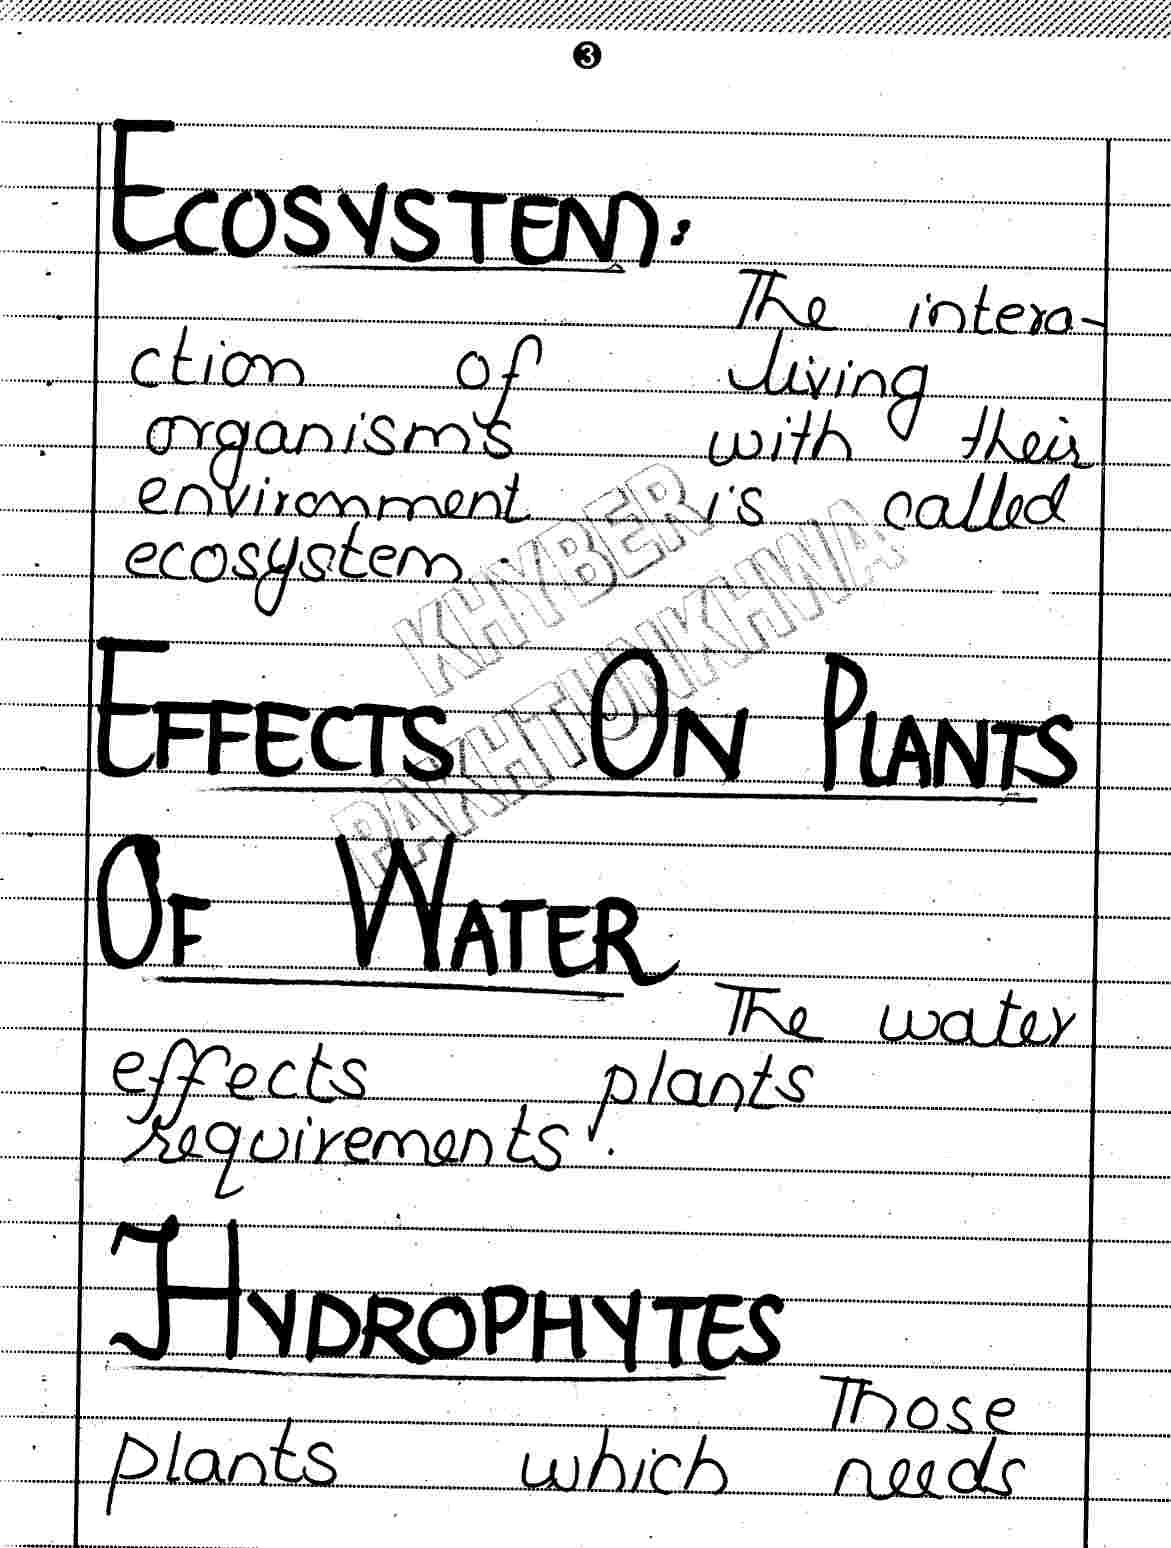 3
ECOSYSTEM:
The intera-
ction of living
organisms with their
environment is called
ecosystem.
KHYBER
PAKHTUNKHWA
EFFECTS ON PLANTS
OF WATER
The water
effects plants
requirements.
HYDROPHYTES
Those
plants which needs